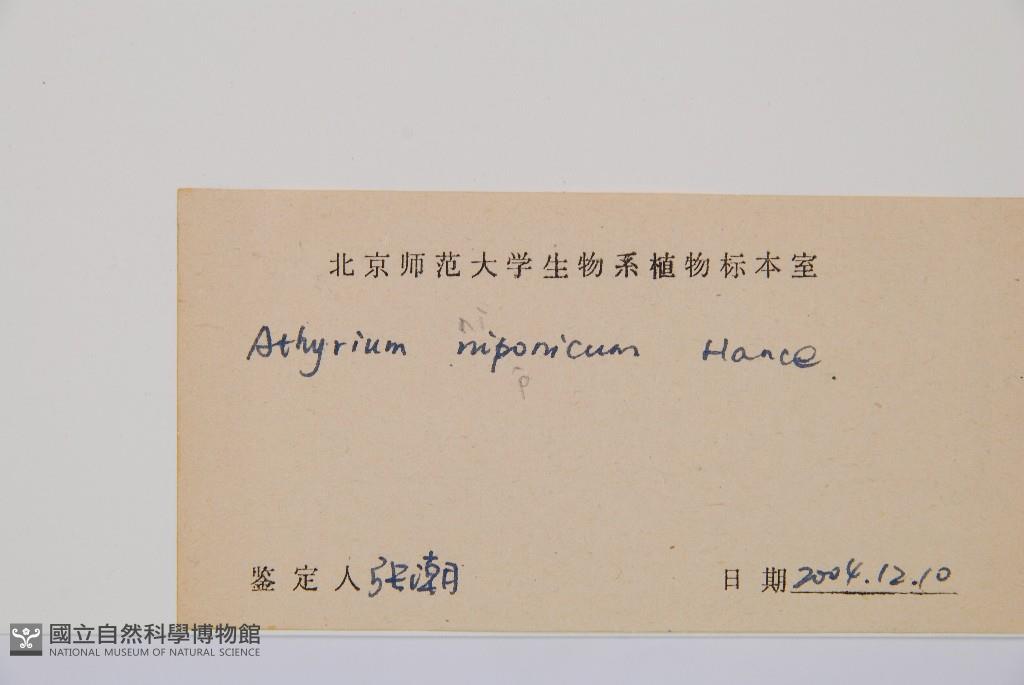 北京师范大学生物系植物标本室
ni
Athyrium niponicum Hance.
p
鉴定人 张潮 日期 2004.12.10
國立自然科學博物館
NATIONAL MUSEUM OF NATURAL SCIENCE